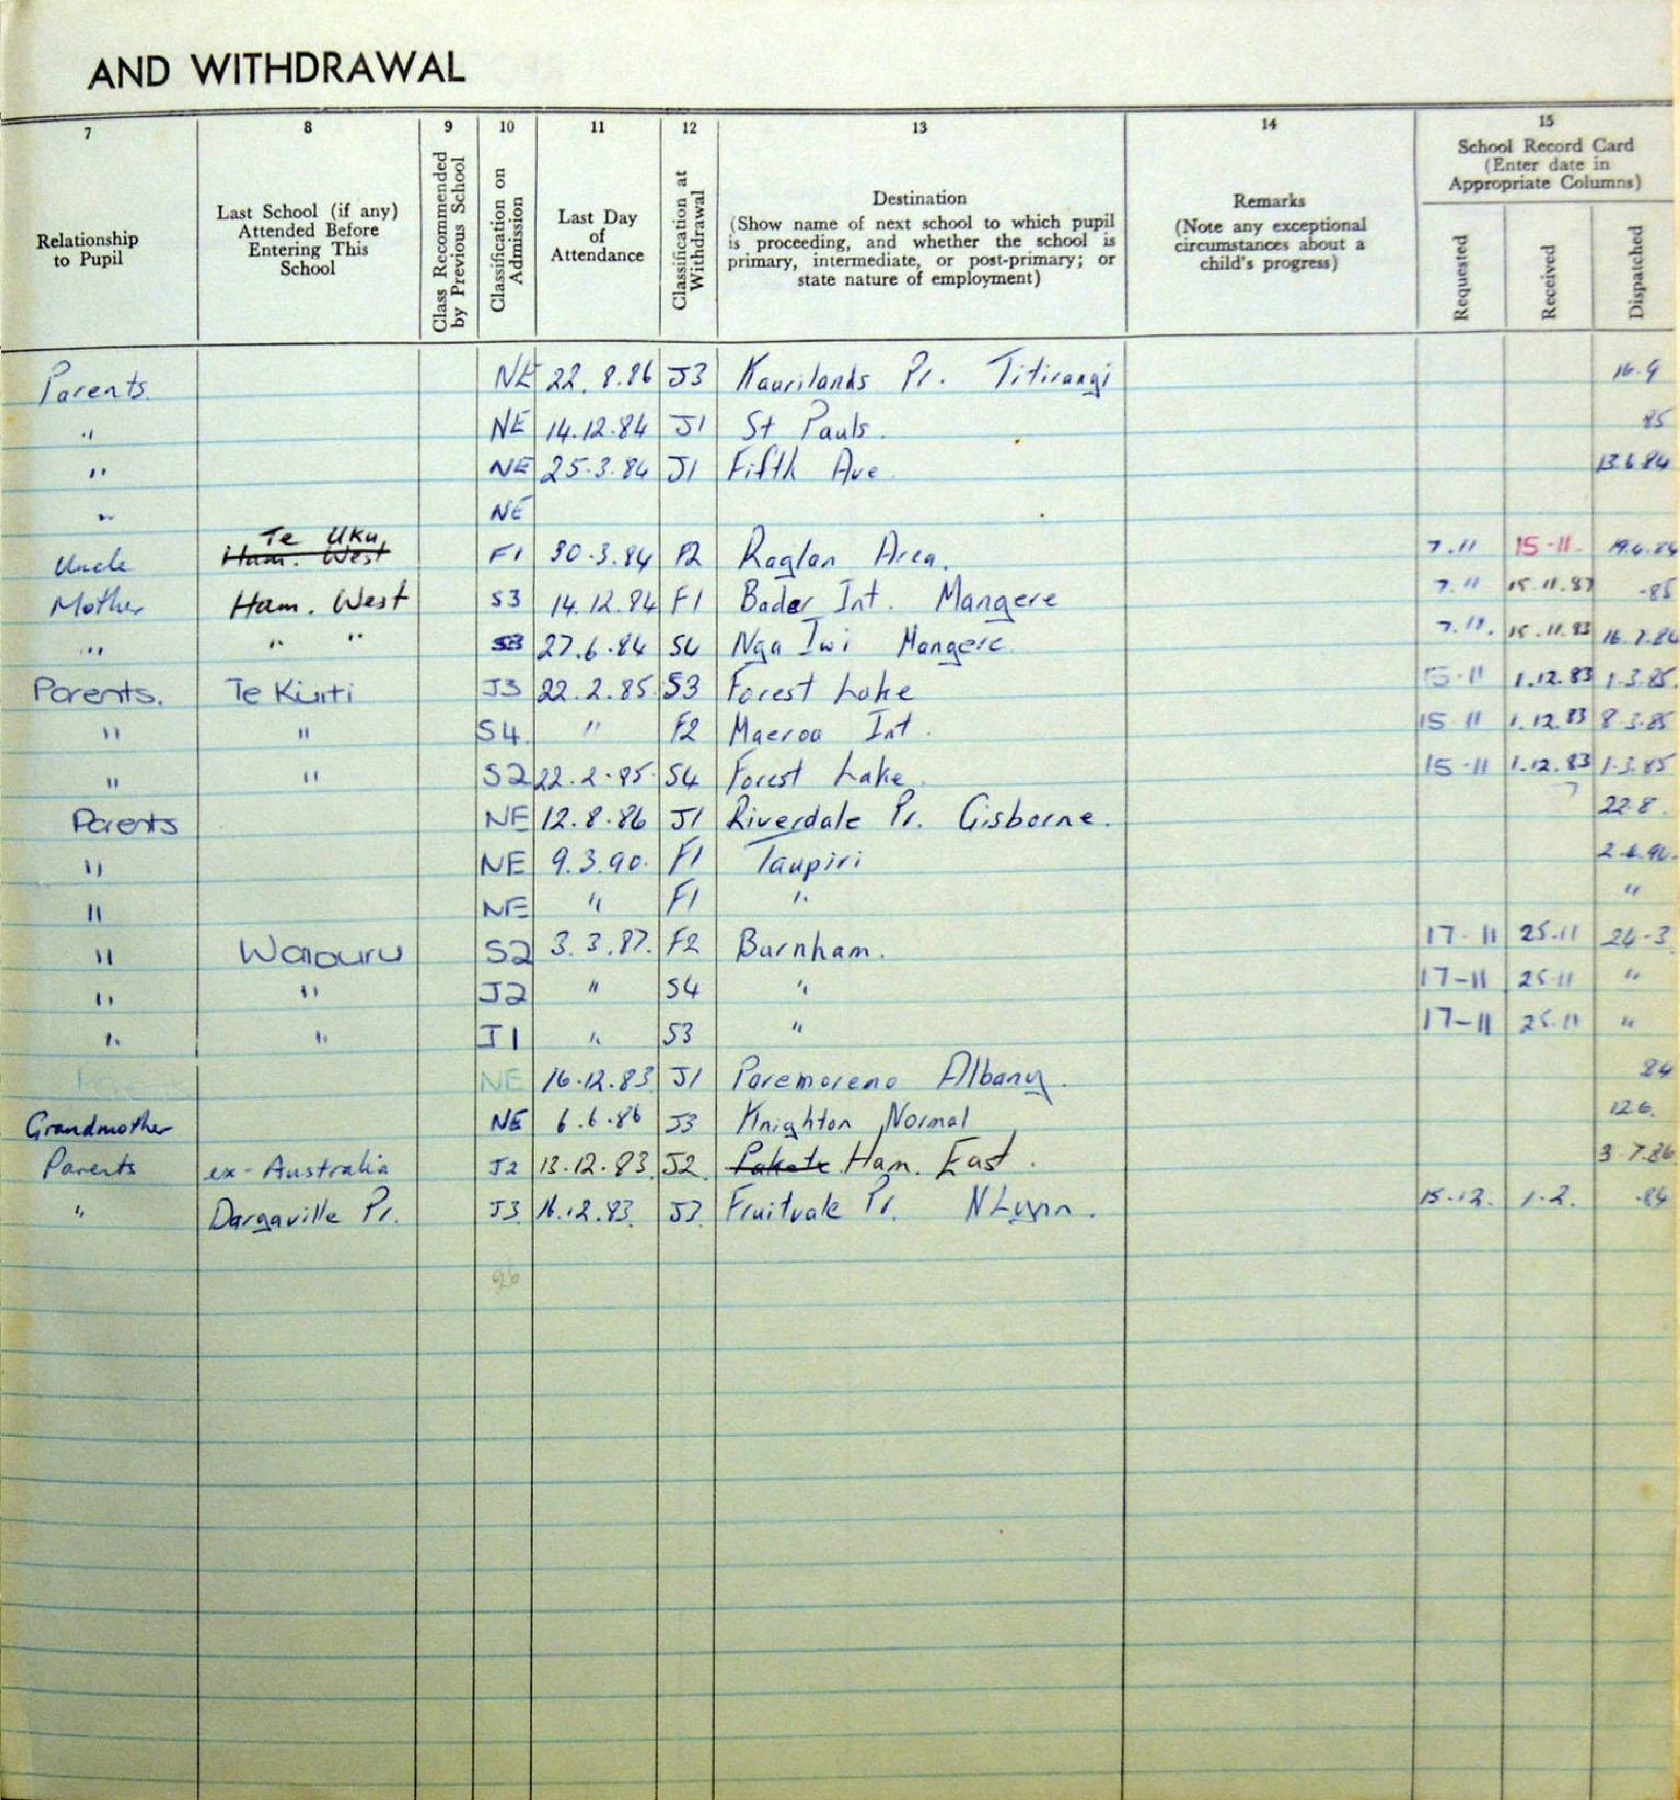 AND WITHDRAWAL
7 8 9 10 11 12 13 14 15
Relationship to Pupil
Last School (if any) Attended Before Entering This School
Class Recommended by Previous School
Classification on Admission
Last Day of Attendance
Classification at Withdrawal
Destination
(Show name of next school to which pupil is proceeding, and whether the school is primary, intermediate, or post-primary; or state nature of employment)
Remarks
(Note any exceptional circumstances about a child's progress)
School Record Card
(Enter date in Appropriate Columns)
Requested Received Dispatched
Parents. NE 22.8.86 J3 Kaurilands Pr. Titirangi 16.9
" NE 14.12.84 J1 St Pauls. 85
" NE 25.3.84 J1 Fifth Ave 13.6.84
" NE
Te Uku
Uncle Ham. West F1 30.3.84 F2 Raglan Area. 7.11 15-11. 19.6.84
Mother Ham. West S3 14.12.84 F1 Bader Int. Mangere 7.11 15.11.83 -85
" " " S3 27.6.84 S4 Nga Iwi Mangere 7.11. 15.11.83 16.7.84
Parents. Te Kuiti J3 22.2.85 S3 Forest Lake 15-11 1.12.83 1.3.85.
" " S4. " F2 Maeroa Int. 15 11 1.12.83 8.3.85
" " S2 22.2.85. S4 Forest Lake. 15-11 1.12.83 1.3.85
Parents NE 12.8.86 J1 Riverdale Pr. Gisborne. 22.8.
" NE 9.3.90. F1 Taupiri 2.4.90.
" NE " F1 " "
" Waiouru S2 3.3.87. F2 Burnham. 17-11 25.11 24-3
" " J2 " S4 " 17-11 25.11 "
" " J1 " S3 " 17-11 25.11 "
NE 16.12.83 J1 Paremoremo Albany. 84
Grandmother NE 6.6.86 J3 Knighton Normal 12.6.
Parents ex-Australia J2 13.12.83. J2. Ham. East. 3.7.86
" Dargaville Pr. J3. 16.12.83. J3. Fruitvale Pr. N Lynn. 15.12. 1.2. .84